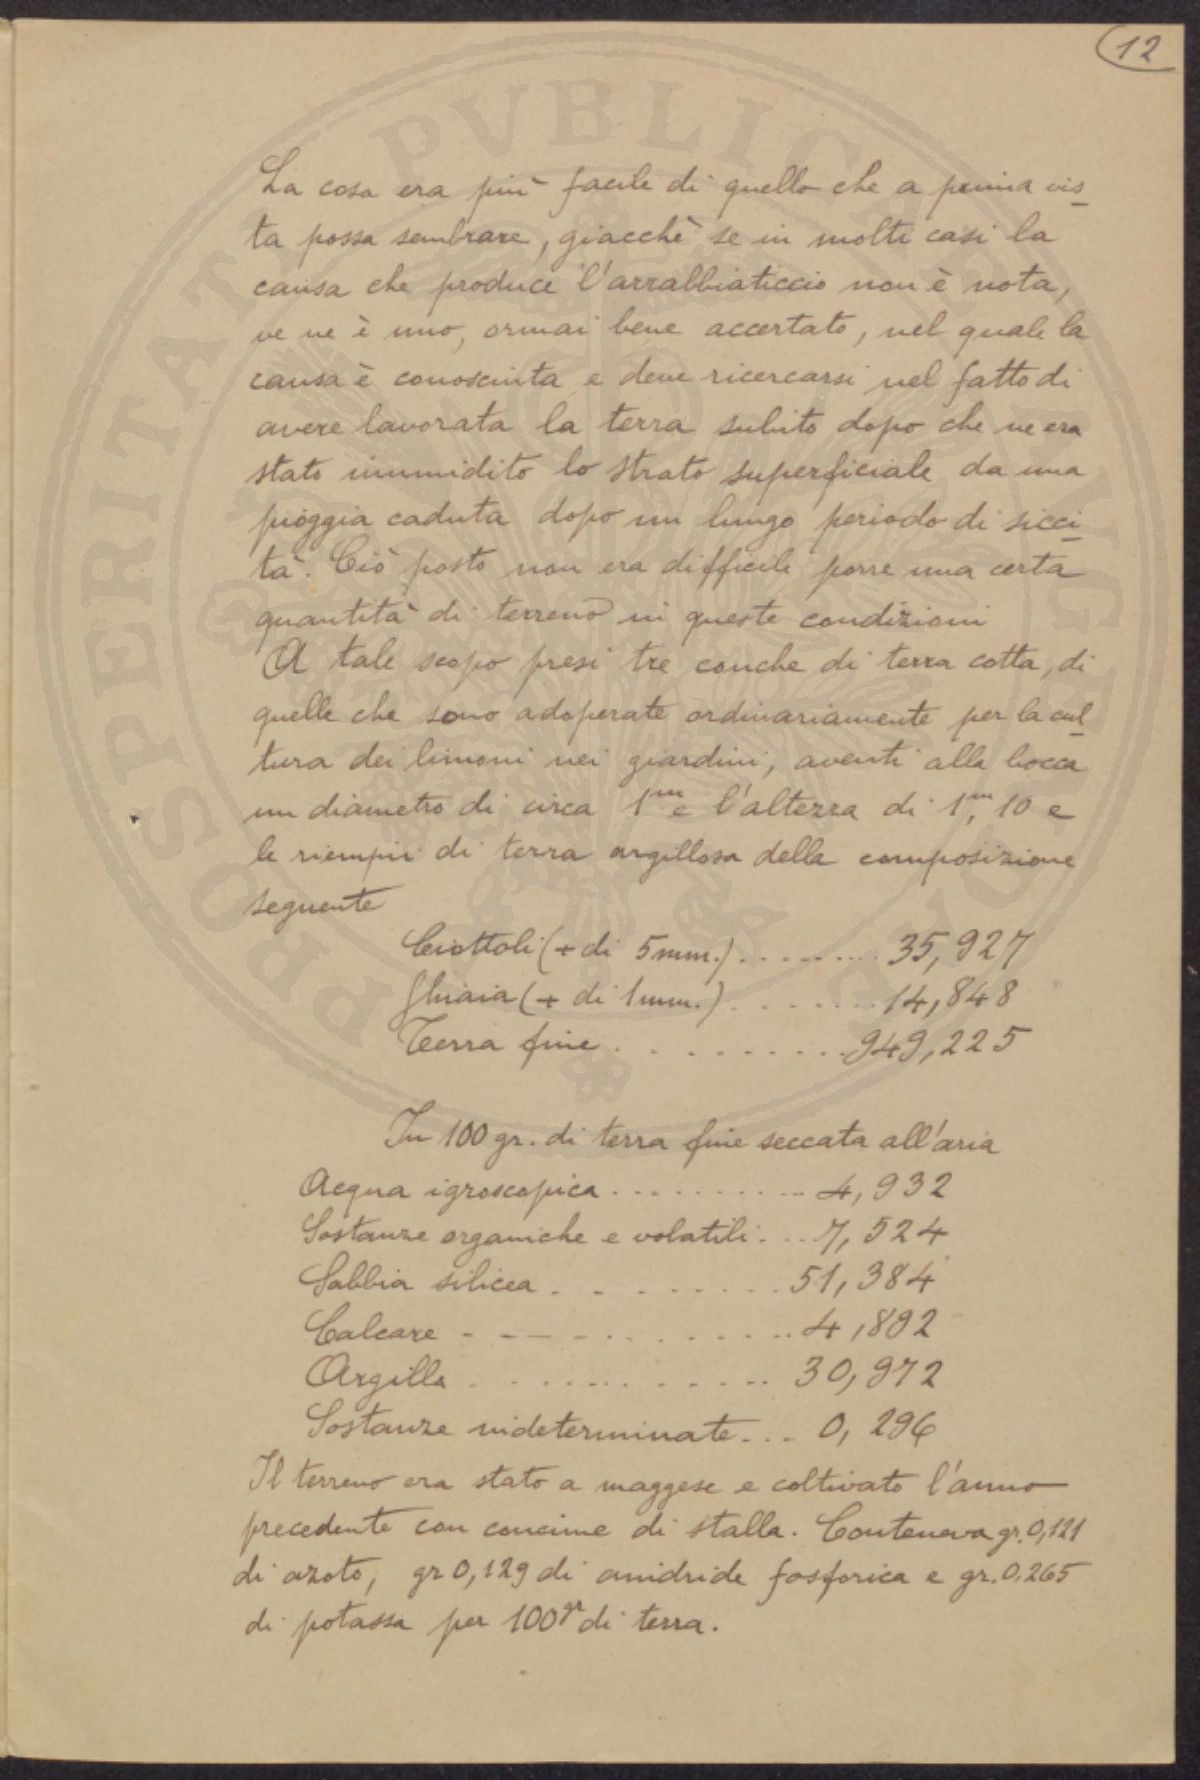 12
La cosa era più facile di quello che a prima vis-
ta possa sembrare, giacchè se in molti casi la
causa che produce l'arrabbiaticcio non è nota,
ve ne è uno, ormai bene accertato, nel quale la
causa è conosciuta e deve ricercarsi nel fatto di
avere lavorata la terra subito dopo che ne era
stato inumidito lo strato superficiale da una
pioggia caduta dopo un lungo periodo di sicci-
tà. Ciò posto non era difficile porre una certa
quantità di terreno in queste condizioni
A tale scopo presi tre conche di terra cotta, di
quelle che sono adoperate ordinariamente per la cul-
tura dei limoni nei giardini, aventi alla bocca
un diametro di circa 1m e l'altezza di 1m,10 e
le riempii di terra argillosa della composizione
seguente
Ciottoli (+ di 5mm.) ......... 35,927
Ghiaia (+ di 1mm.) ....... 14,848
Terra fine .......... 949,225
In 100 gr. di terra fine seccata all'aria
Acqua igroscopica .......... 4,932
Sostanze organiche e volatili ... 7,524
Sabbia silicea ......... 51,384
Calcare ............ 4,892
Argilla ............ 30,972
Sostanze indeterminate ... 0,296
Il terreno era stato a maggese e coltivato l'anno
precedente con concime di stalla. Conteneva gr. 0,121
di azoto, gr 0,129 di anidride fosforica e gr. 0.265
di potassa per 100gr di terra.
PROSPERITATI PVBLICAE AVGENDAE